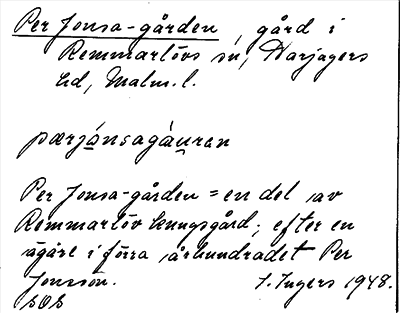 Per Jonsa-gården, gård i
Remmarlövs sn, Harjagers
hd, Malm. l.
pærjánsagáuran
Per Jonsa-gården = en del av
Remmarlöv kungsgård; efter en
ägare i förra århundradet Per
Jonsson. I. Ingers 1948.
SOS